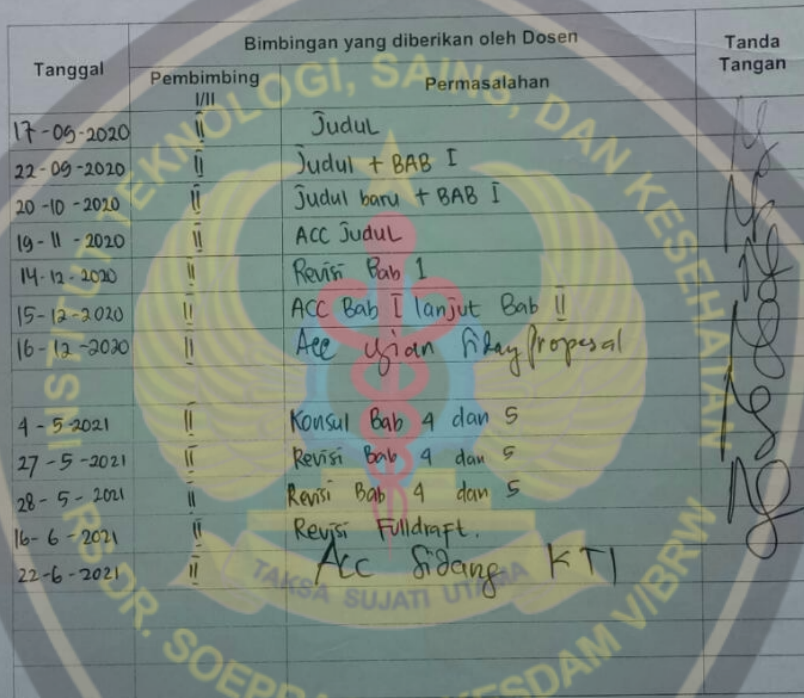 Tanggal
Bimbingan yang diberikan oleh Dosen
Tanda Tangan
Pembimbing I/II
Permasalahan
17-09-2020 II Judul
22-09-2020 II Judul + BAB I
20-10-2020 II Judul baru + BAB I
19-11-2020 II ACC Judul
14-12-2020 II Revisi Bab 1
15-12-2020 II ACC Bab I lanjut Bab II
16-12-2020 II Acc ujian Sidang Proposal
4-5-2021 II Konsul Bab 4 dan 5
27-5-2021 II Revisi Bab 4 dan 5
28-5-2021 II Revisi Bab 4 dan 5
16-6-2021 II Revisi Fulldraft.
22-6-2021 II Acc Sidang KTI
INSTITUT TEKNOLOGI, SAINS, DAN KESEHATAN
RS DR.
KESDAM V/BRW
TAKSA SUJATI UTAMA